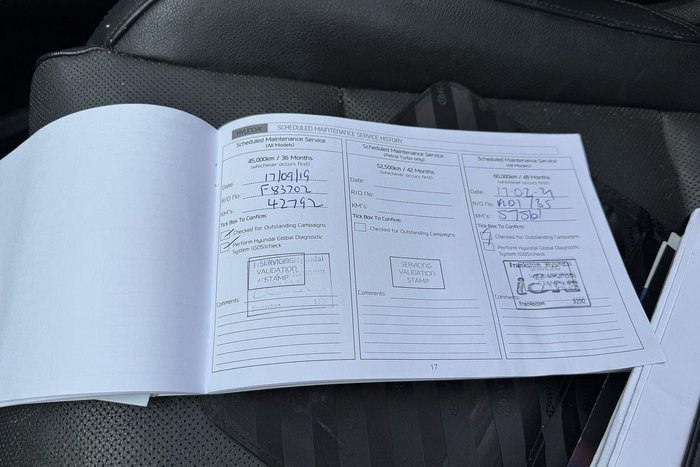 HYUNDAI SCHEDULED MAINTENANCE SERVICE HISTORY
Scheduled Maintenance Service
(All Models)
45,000km / 36 Months
(whichever occurs first)
Date: 17/09/19
R/O no: F83702
KM's: 42792
Tick Box To Confirm:
Checked for Outstanding Campaigns
Perform Hyundai Global Diagnostic
System (GDS)check
SERVICING
VALIDATION
STAMP
Frankston 3200
Comments:
Scheduled Maintenance Service
(Petrol Turbo only)
52,500km / 42 Months
(whichever occurs first)
Date:
R/O no:
KM's:
Tick Box To Confirm:
Checked for Outstanding Campaigns
SERVICING
VALIDATION
STAMP
Comments:
Scheduled Maintenance Service
(All Models)
60,000km / 48 Months
(whichever occurs first)
Date: 17-02-21
R/O no:
KM's:
Tick Box To Confirm:
Checked for Outstanding Campaigns
Perform Hyundai Global Diagnostic
System (GDS)check
Frankston Hyundai
SERVICING
Frankston 3200
Comments:
17